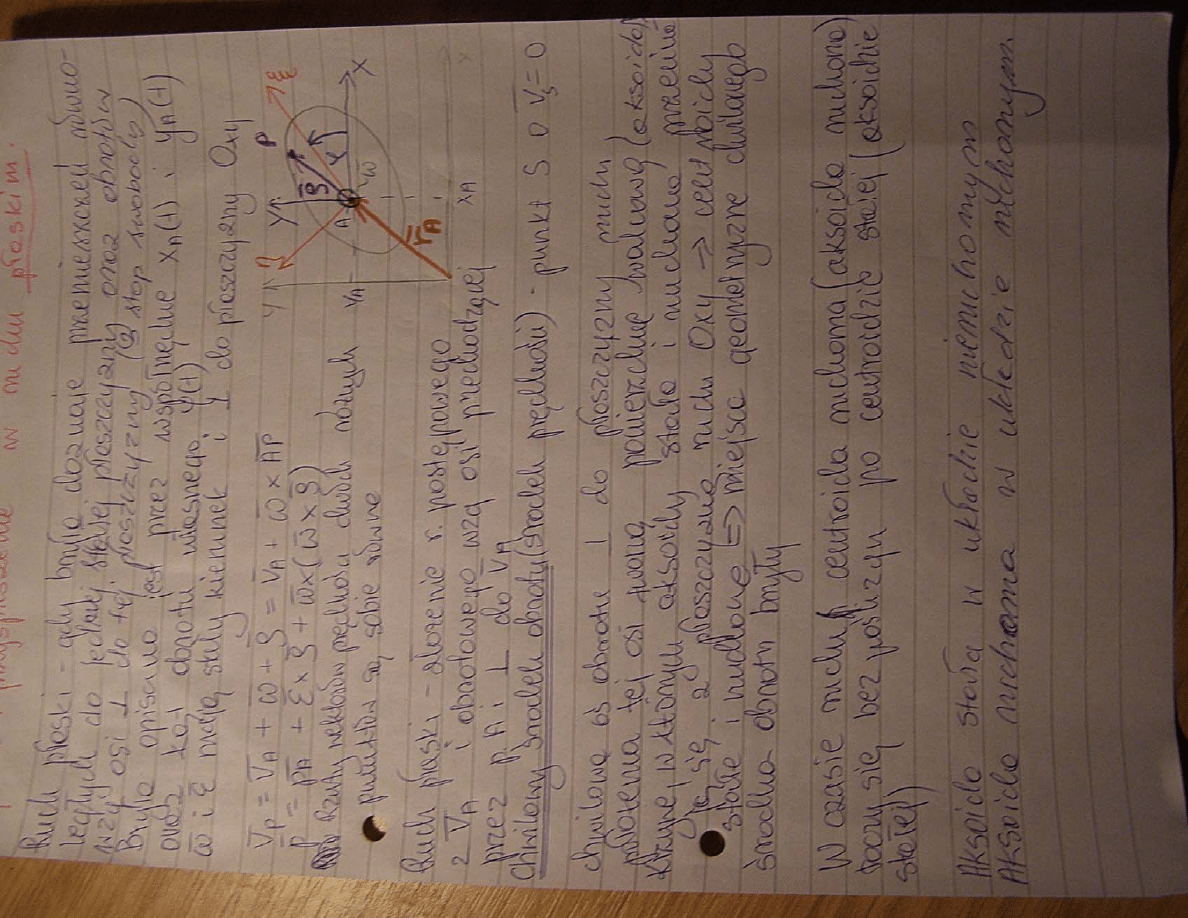 przyspieszenie w ruchu płaskim.
Ruch płaski - gdy bryła doznaje przemieszczeń równo-
ległych do jednej stałej płaszczyzny oraz obrotów
wzgl osi ⊥ do tej płaszczyzny (2 stop swobody)
Bryła opisana jest przez współrzędne xA(t) i yA(t)
oraz kąt obrotu własnego φ(t)
ω̄ i ε̄ mają stały kierunek i ⊥ do płaszczyzny Oxy
V̄P = V̄A + ω̄ + ρ̄ = V̄A + ω̄ × A̅P̅
p̄ = p̄A + ε̄ × ρ̄ + ω̄ × (ω̄ × ρ̄)
Rzuty wektorów prędkości dwóch różnych
punktów są sobie równe
Y
η
Y
P
ξ
ρ̄
φ
A
ω̄
X
yA
r̄A
xA
Ruch płaski - złożenie r. postępowego
z V̄A i obrotowego wzg osi przechodzącej
przez p. A i ⊥ do V̄A
Chwilowy środek obrotu (środek prędkości) - punkt S o V̄s = 0
chwilowa oś obrotu ⊥ do płaszczyzny ruchu
położenia tej osi tworzą powierzchnię walcową (aksoidą)
Krzywe, w których aksoidy stała i ruchoma przecina
ją się z płaszczyzną ruchu Oxy → centroidy
stałe i ruchome ⇒ miejsca geometryczne chwilowego
środka obrotu bryły
W czasie ruchu centroida ruchoma (aksoida ruchoma)
toczy się bez poślizgu po centroidzie stałej (aksoidzie
stałej)
Aksoida stała w układzie nieruchomym
Aksoida ruchoma w układzie ruchomym.